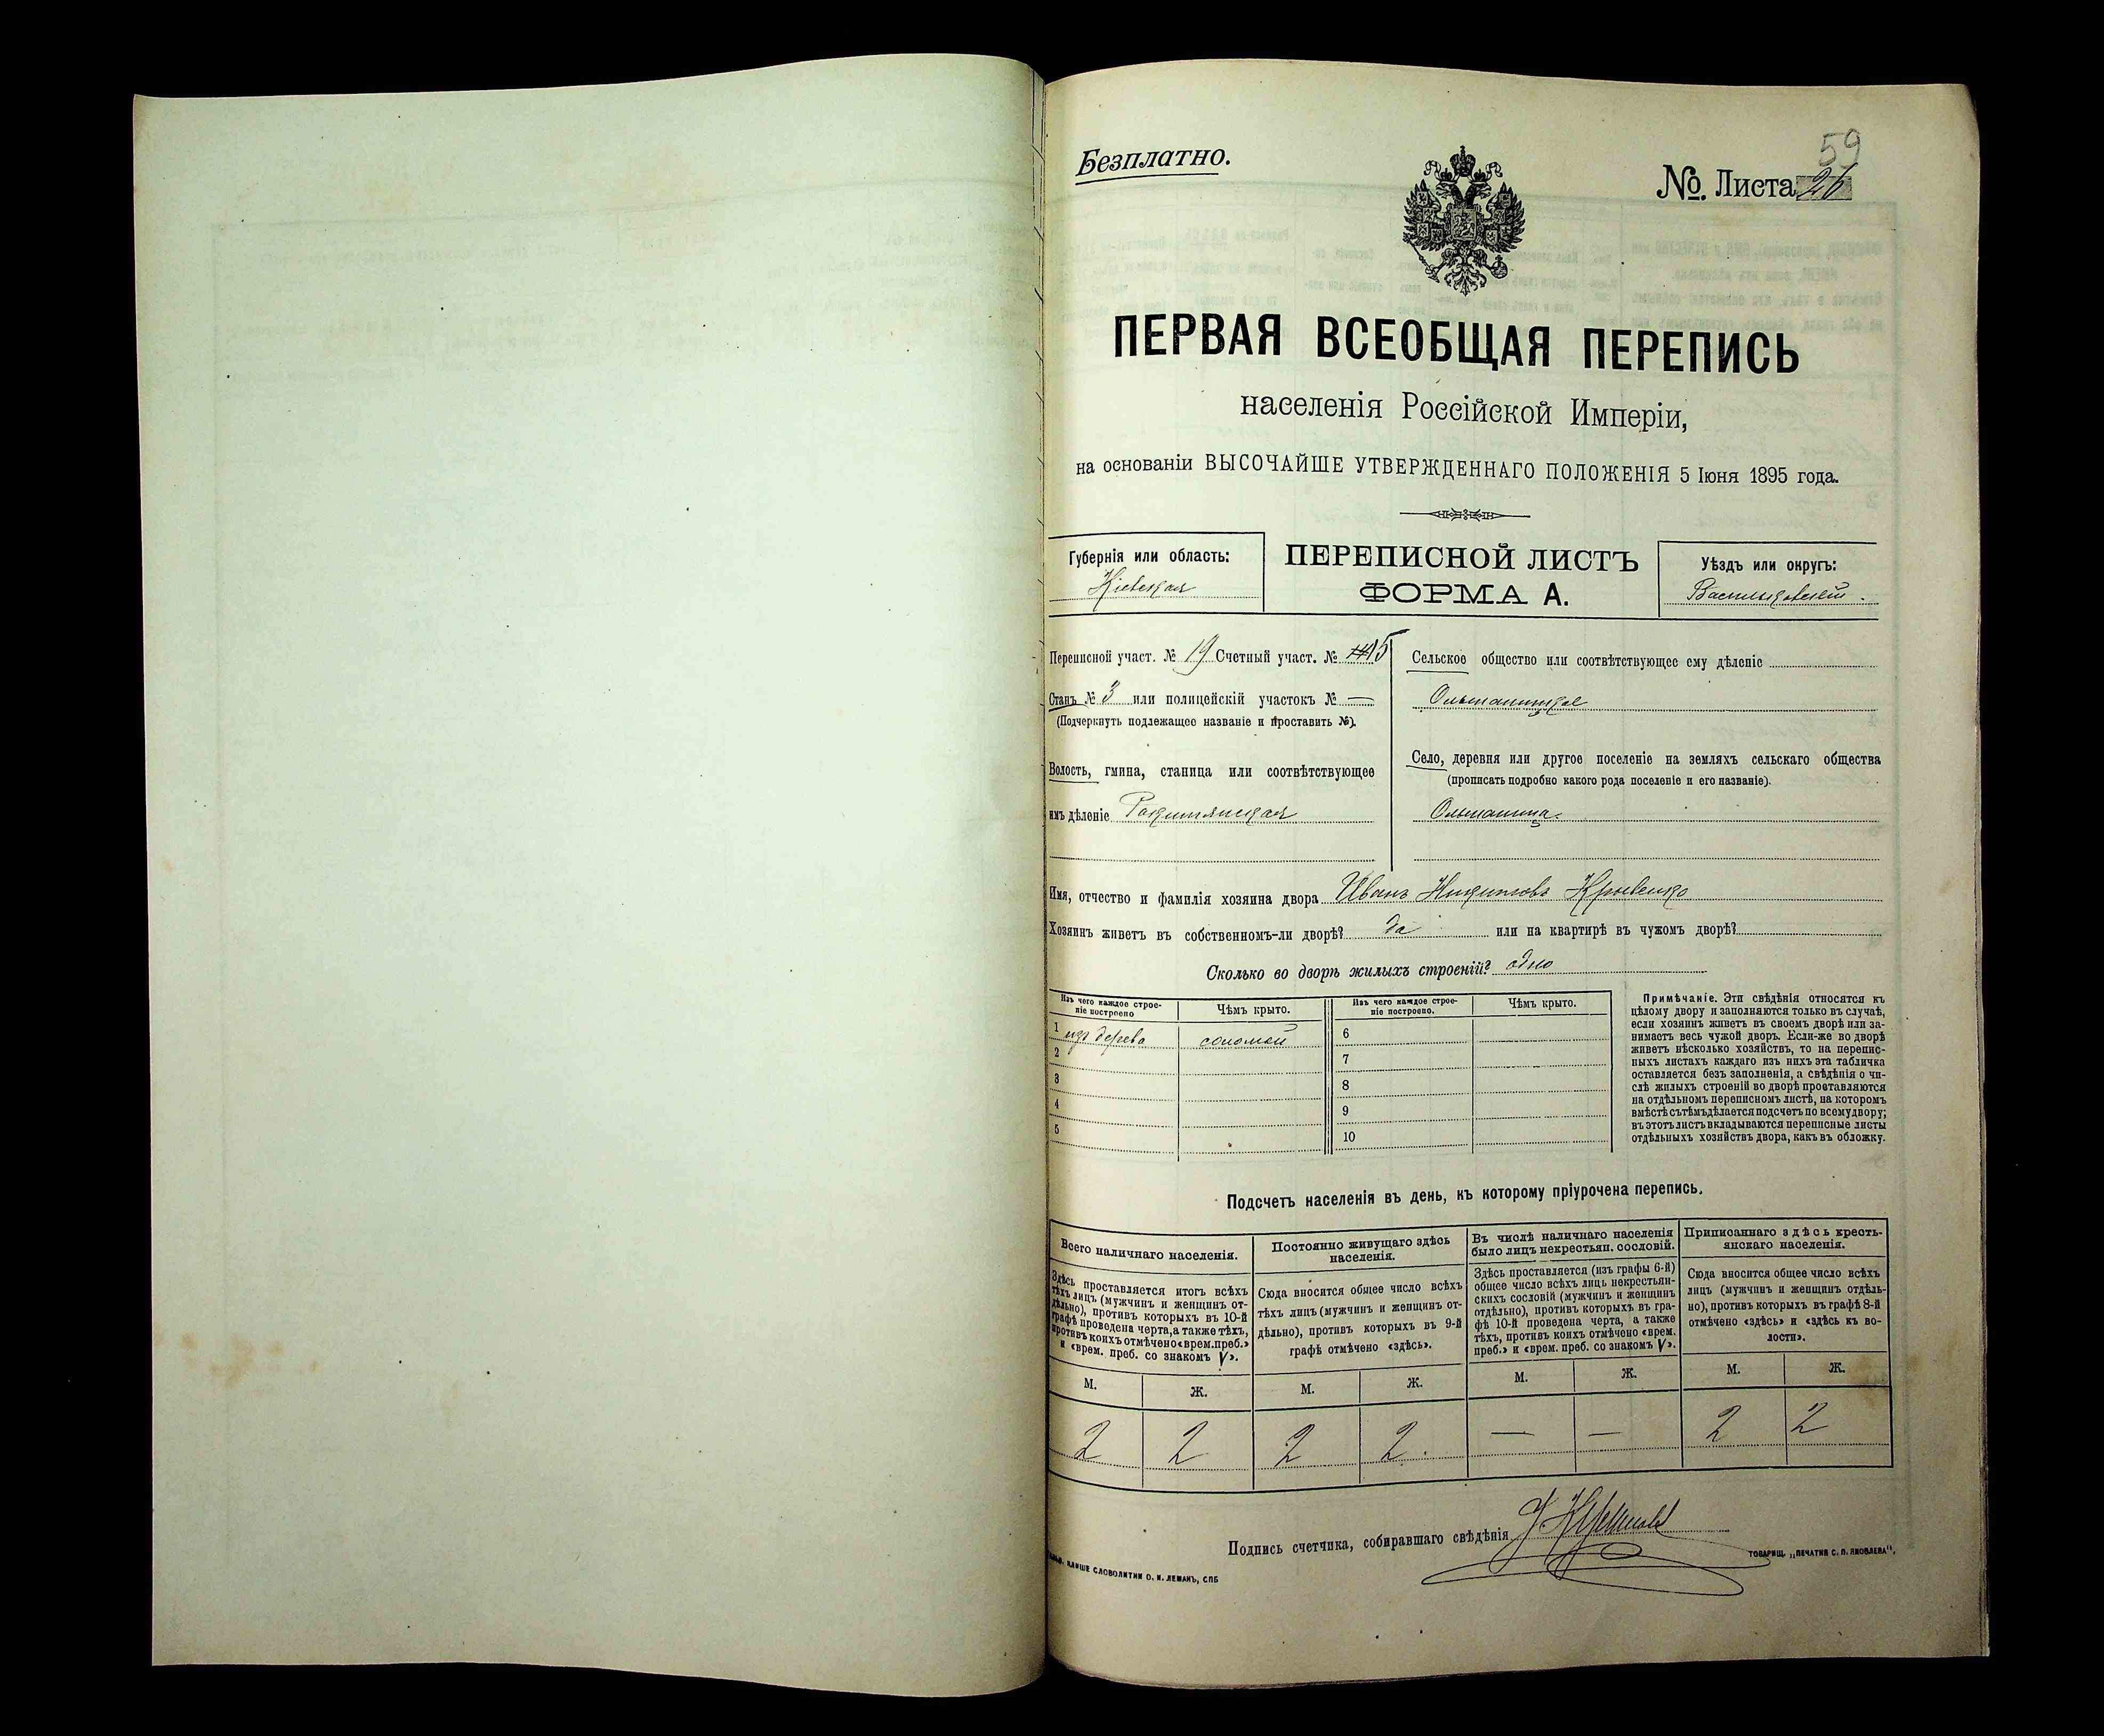 Безплатно.
59
№. Листа 26
ПЕРВАЯ ВСЕОБЩАЯ ПЕРЕПИСЬ
населенія Россійской Имперіи,
на основаніи ВЫСОЧАЙШЕ УТВЕРЖДЕННАГО ПОЛОЖЕНІЯ 5 Іюня 1895 года.
Губернія или область:
Кіевская
ПЕРЕПИСНОЙ ЛИСТЪ
ФОРМА А.
Уѣздъ или округъ:
Васильковскій.
Переписной участ. № 19 Счетный участ. № 15
Станъ № 3 или полицейскій участокъ № —
(Подчеркнуть подлежащее названіе и проставить №).
Волость, гмина, станица или соотвѣтствующее
имъ дѣленіе Ракитянская
Сельское общество или соотвѣтствующее ему дѣленіе
Ольшаницкое
Село, деревня или другое поселеніе на земляхъ сельскаго общества
(прописать подробно какого рода поселеніе и его названіе).
Ольшаница.
Имя, отчество и фамилія хозяина двора Иванъ Никитовъ Кривенко
Хозяинъ живетъ въ собственномъ-ли дворѣ? да или на квартирѣ въ чужомъ дворѣ?
Сколько во дворѣ жилыхъ строеній? одно
Изъ чего каждое строе-
ніе построено
Чѣмъ крыто.
Изъ чего каждое строе-
ніе построено.
Чѣмъ крыто.
1 изъ дерева соломой 6
2 7
3 8
4 9
5 10
Примѣчаніе. Эти свѣдѣнія относятся къ
цѣлому двору и заполняются только въ случаѣ,
если хозяинъ живетъ въ своемъ дворѣ или за-
нимаетъ весь чужой дворъ. Если-же во дворѣ
живетъ нѣсколько хозяйствъ, то на перепис-
ныхъ листахъ каждаго изъ нихъ эта табличка
оставляется безъ заполненія, а свѣдѣнія о чи-
слѣ жилыхъ строеній во дворѣ проставляются
на отдѣльномъ переписномъ листѣ, на которомъ
вмѣстѣ съ тѣмъ дѣлается подсчетъ по всему двору;
въ этотъ листъ вкладываются переписные листы
отдѣльныхъ хозяйствъ двора, какъ въ обложку.
Подсчетъ населенія въ день, къ которому пріурочена перепись.
Всего наличнаго населенія.
Здѣсь проставляется итогъ всѣхъ
тѣхъ лицъ (мужчинъ и женщинъ от-
дѣльно), противъ которыхъ въ 10-й
графѣ проведена черта, а также тѣхъ,
противъ коихъ отмѣчено «врем. преб.»
и «врем. преб. со знакомъ V».
Постоянно живущаго здѣсь
населенія.
Сюда вносится общее число всѣхъ
тѣхъ лицъ (мужчинъ и женщинъ от-
дѣльно), противъ которыхъ въ 9-й
графѣ отмѣчено «здѣсь».
Въ числѣ наличнаго населенія
было лицъ некрестьян. сословій.
Здѣсь проставляется (изъ графы 6-й)
общее число всѣхъ лицъ некрестьян-
скихъ сословій (мужчинъ и женщинъ
отдѣльно), противъ которыхъ въ гра-
фѣ 10-й проведена черта, а также
тѣхъ, противъ коихъ отмѣчено «врем.
преб.» и «врем. преб. со знакомъ V».
Приписаннаго здѣсь кресть-
янскаго населенія.
Сюда вносится общее число всѣхъ
лицъ (мужчинъ и женщинъ отдѣль-
но), противъ которыхъ въ графѣ 8-й
отмѣчено «здѣсь» и «здѣсь къ во-
лости».
М. Ж. М. Ж. М. Ж. М. Ж.
2 2 2 2. — — 2 2
Подпись счетчика, собиравшаго свѣдѣнія
КЛИШЕ СЛОВОЛИТНИ О. И. ЛЕМАНЪ, СПБ
ТОВАРИЩ. „ПЕЧАТНЯ С. П. ЯКОВЛЕВА“.